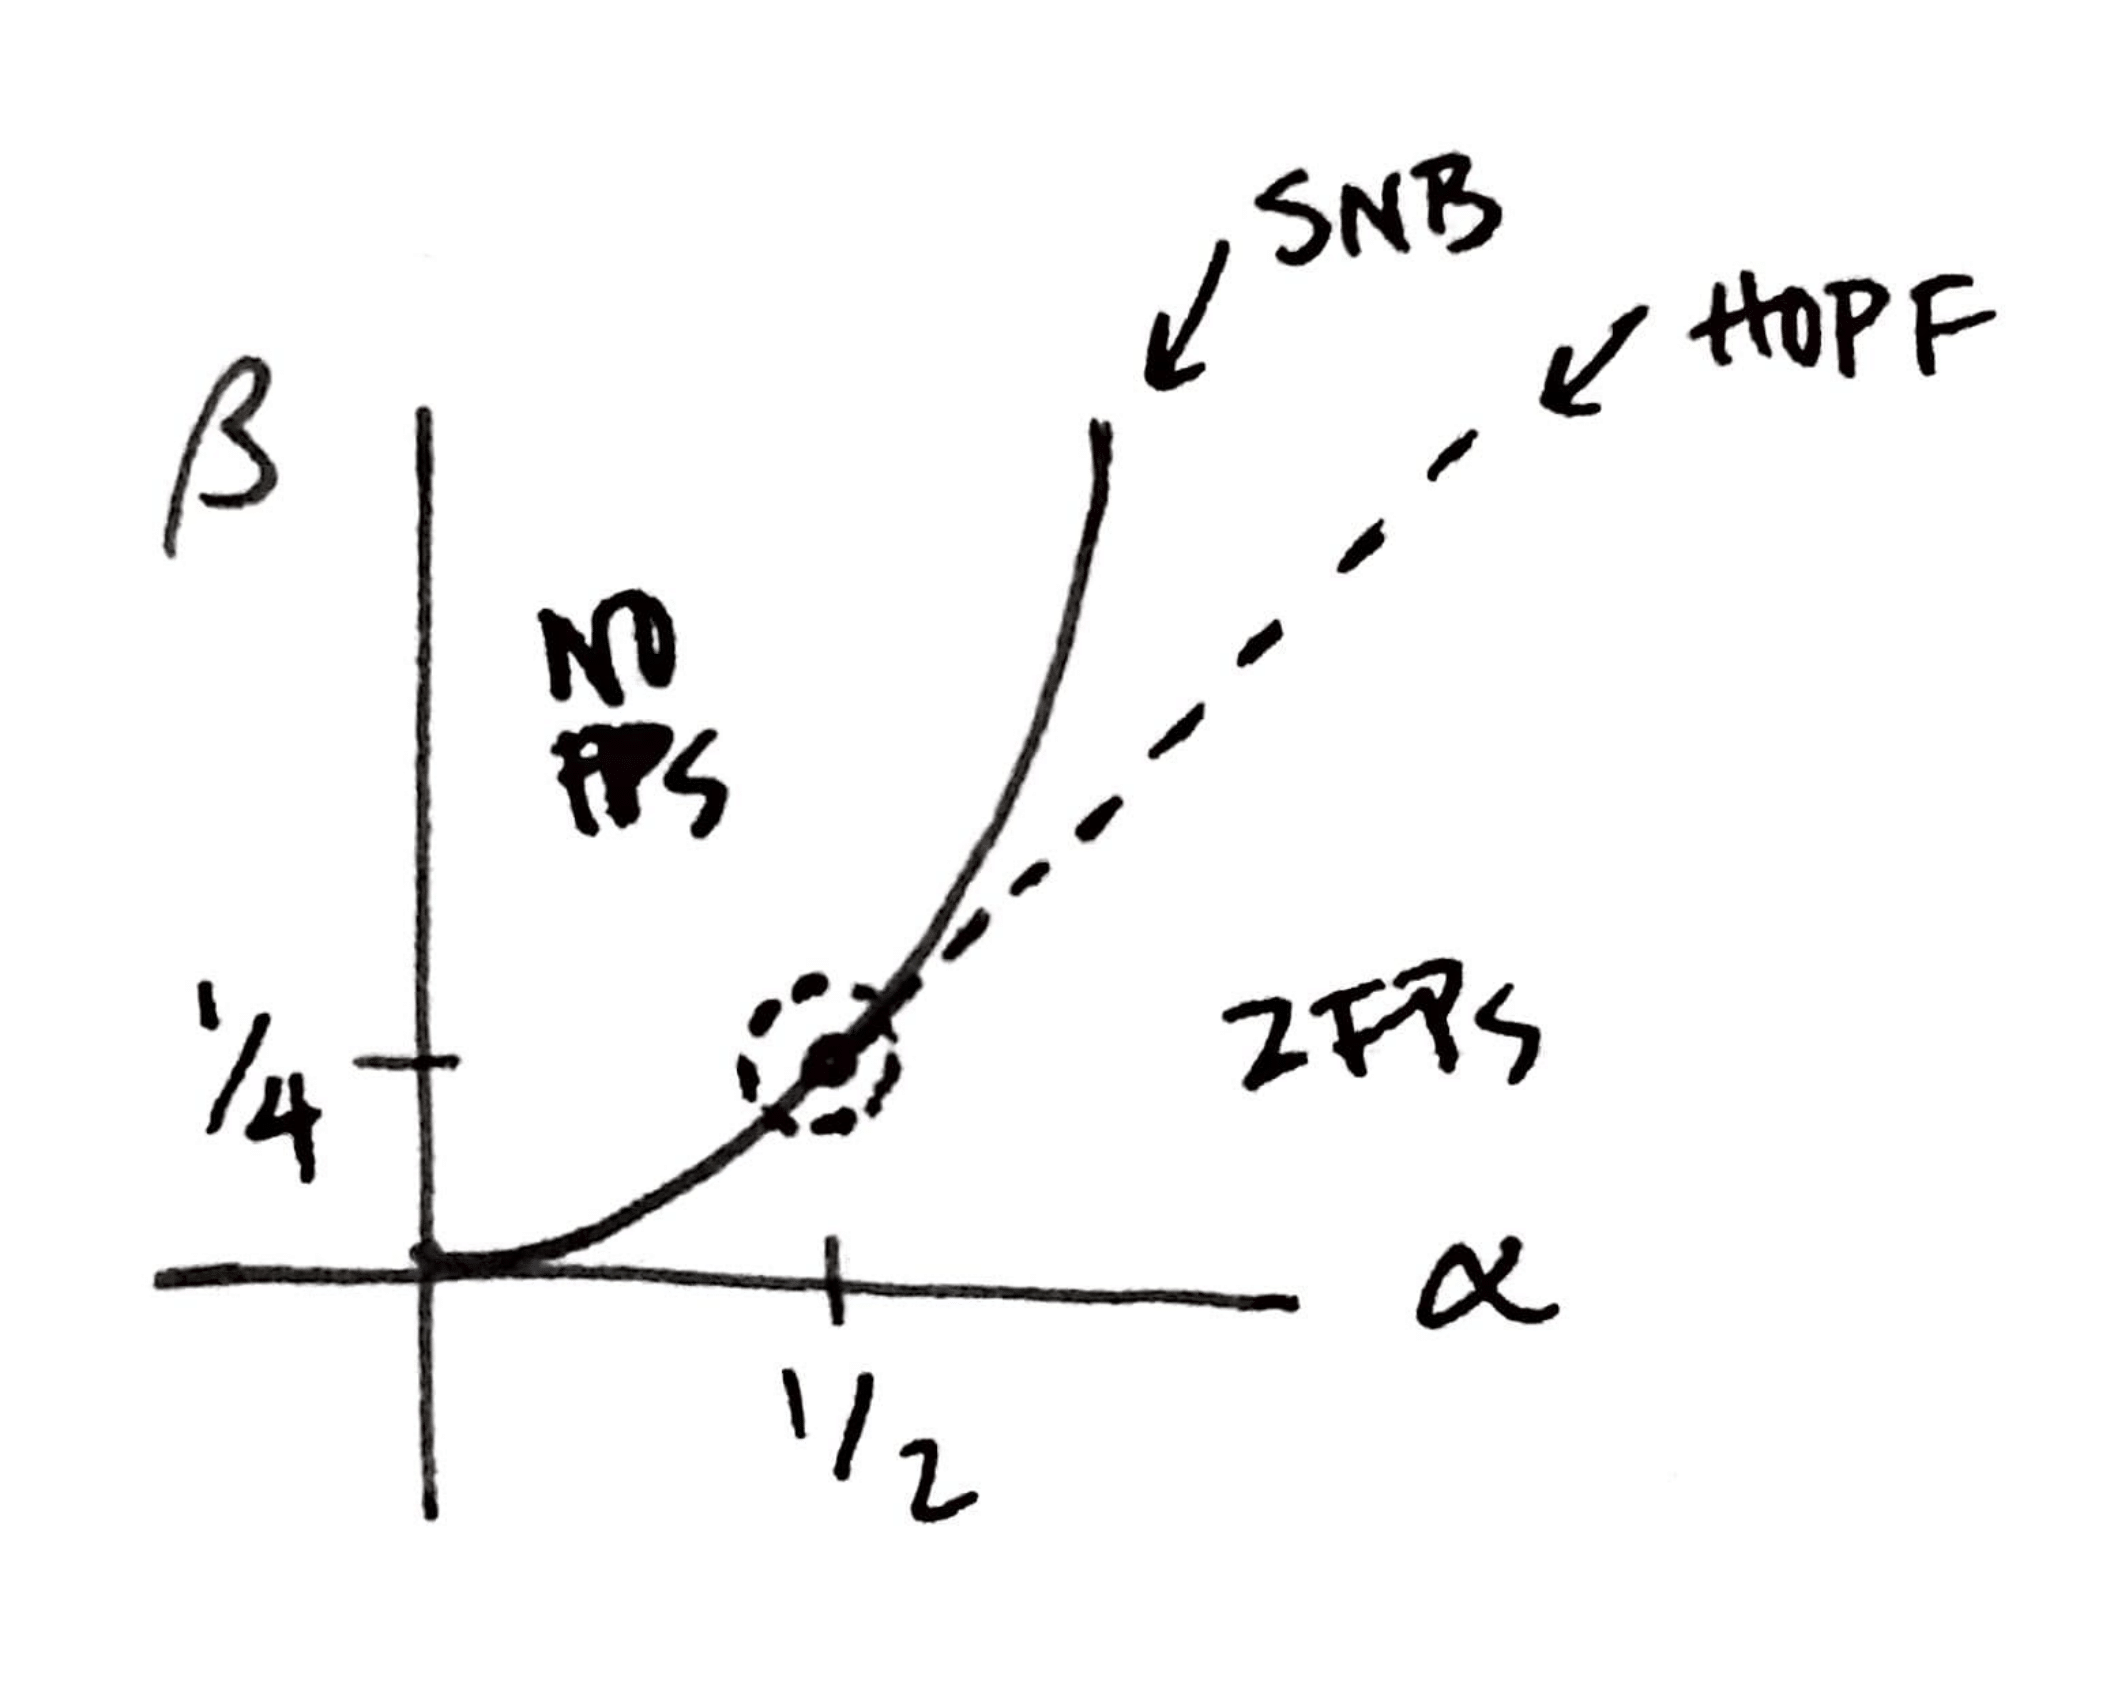 SNB
HOPF
β
NO
FPS
1/4
2FPS
α
1/2